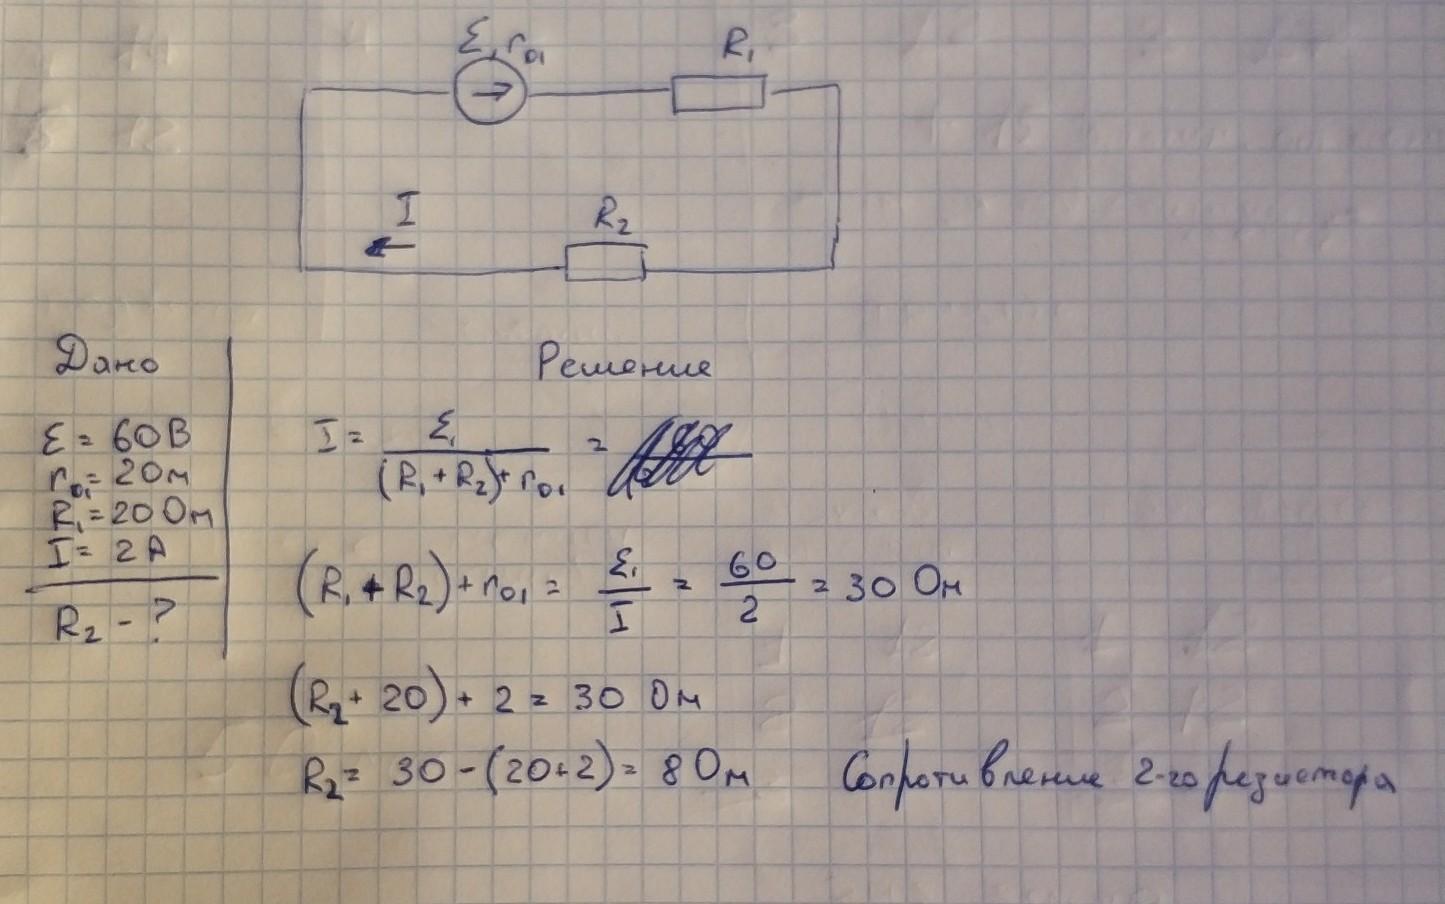 ε, r₀₁
R₁
I
R₂
Дано
Решение
ε = 60 В
r₀₁ = 2 Ом
R₁ = 20 Ом
I = 2 А
R₂ - ?
I = ε₁ / (R₁ + R₂) + r₀₁ =
(R₁ + R₂) + r₀₁ = ε₁ / I = 60 / 2 = 30 Ом
(R₂ + 20) + 2 = 30 Ом
R₂ = 30 - (20 + 2) = 8 Ом Сопротивление 2-го резистора